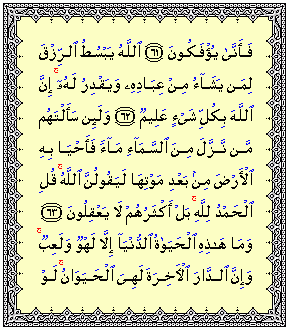 فَأَنَّىٰ يُؤْفَكُونَ ﴿٦١﴾ ٱللَّهُ يَبْسُطُ ٱلرِّزْقَ
لِمَن يَشَآءُ مِنْ عِبَادِهِۦ وَيَقْدِرُ لَهُۥٓ ۚ إِنَّ
ٱللَّهَ بِكُلِّ شَىْءٍ عَلِيمٌ ﴿٦٢﴾ وَلَئِن سَأَلْتَهُم
مَّن نَّزَّلَ مِنَ ٱلسَّمَآءِ مَآءً فَأَحْيَا بِهِ
ٱلْأَرْضَ مِنۢ بَعْدِ مَوْتِهَا لَيَقُولُنَّ ٱللَّهُ ۚ قُلِ
ٱلْحَمْدُ لِلَّهِ ۚ بَلْ أَكْثَرُهُمْ لَا يَعْقِلُونَ ﴿٦٣﴾
وَمَا هَٰذِهِ ٱلْحَيَوٰةُ ٱلدُّنْيَآ إِلَّا لَهْوٌ وَلَعِبٌ ۚ
وَإِنَّ ٱلدَّارَ ٱلْـَٔاخِرَةَ لَهِىَ ٱلْحَيَوَانُ ۚ لَوْ